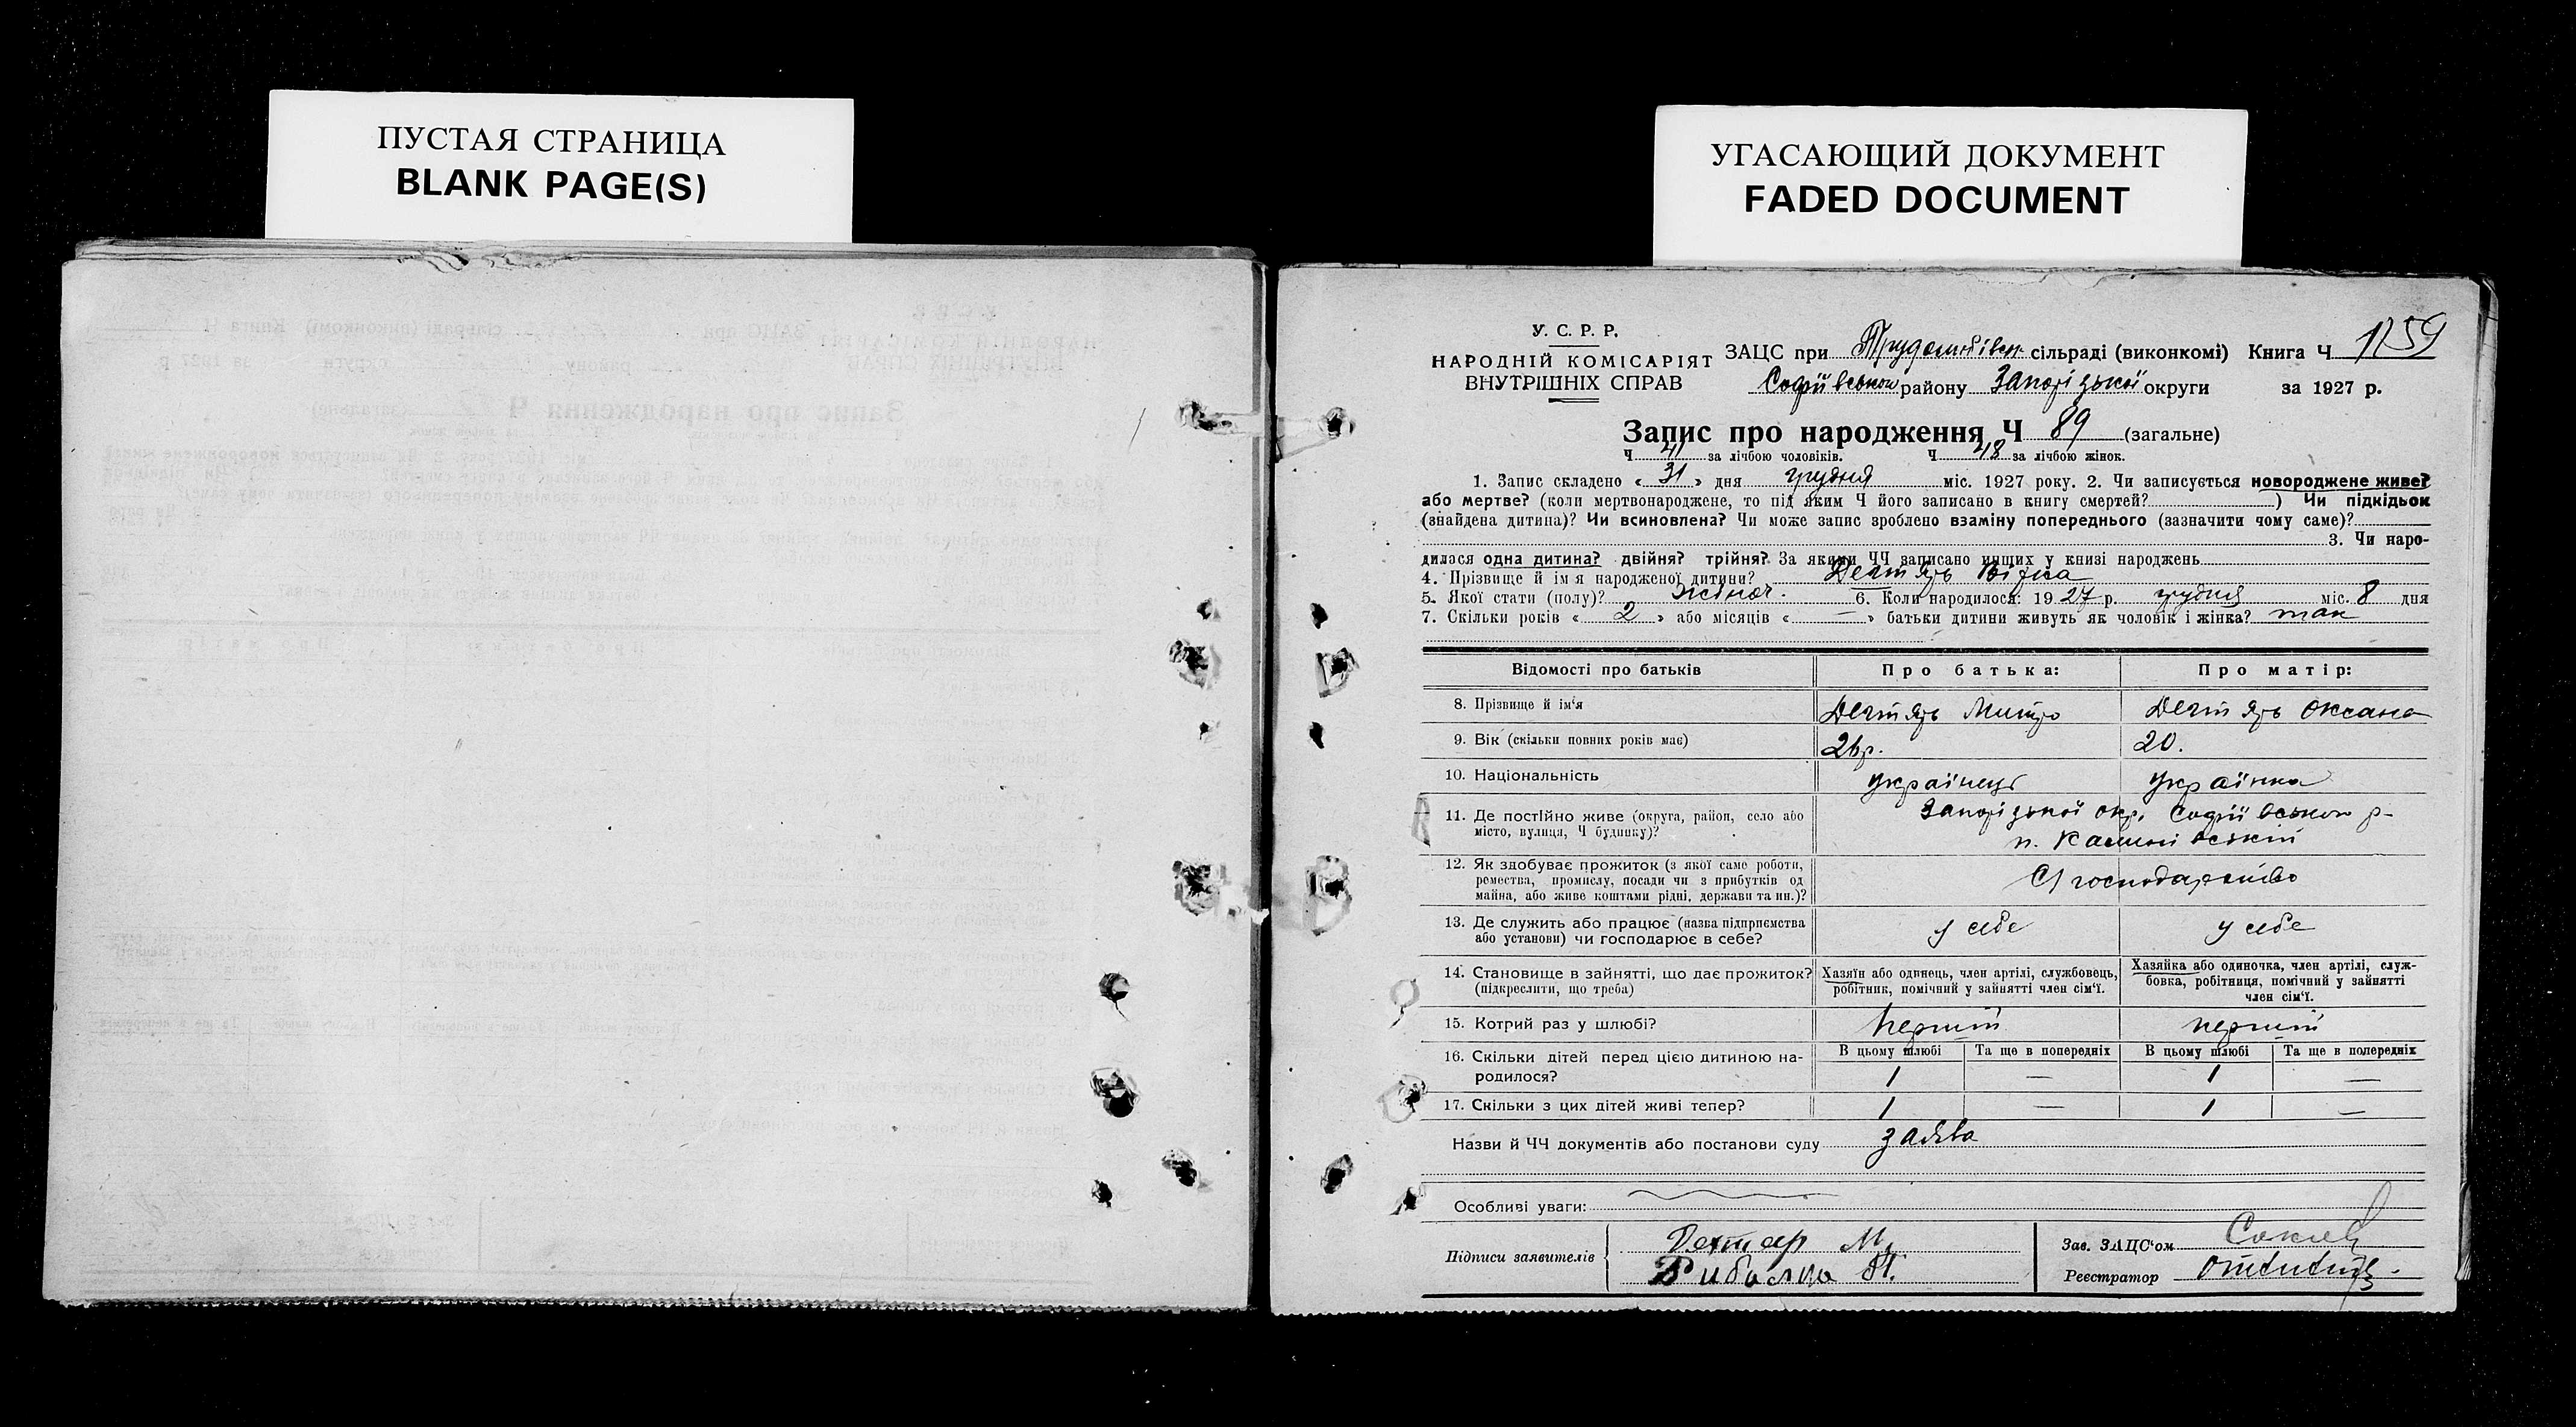 ПУСТАЯ СТРАНИЦА
BLANK PAGE(S)
УГАСАЮЩИЙ ДОКУМЕНТ
FADED DOCUMENT
У. С. Р. Р.
НАРОДНІЙ КОМІСАРІЯТ
ВНУТРІШНІХ СПРАВ
ЗАЦС при Трудолюбівск. сільраді (виконкомі) Книга Ч 1/59
Софіївського району Запорізької округи за 1927 р.
Запис про народження Ч 89 (загальне)
Ч 41 за лічбою чоловіків. Ч 48 за лічбою жінок.
1. Запис складено « 31 » дня грудня міс. 1927 року. 2. Чи записується новороджене живе?
або мертве? (коли мертвонароджене, то під яким Ч його записано в книгу смертей? ) Чи підкідьок
(знайдена дитина)? Чи всиновлена? Чи може запис зроблено взаміну попереднього (зазначити чому саме)?
3. Чи наро-
дилася одна дитина? двійня? трійня? За якими ЧЧ записано инщих у книзі народжень
4. Прізвище й ім'я народженої дитини? Дегтярь
5. Якої стати (полу)? жіноч. 6. Коли народилося: 1927 р. грудня міс. 8 дня
7. Скільки років « 2 » або місяців « — » батьки дитини живуть як чоловік і жінка? так
Відомості про батьків Про батька: Про матір:
8. Прізвище й ім'я Дегтярь Митро Дегтярь Оксана
9. Вік (скільки повних років має) 26р. 20.
10. Національність українець українка
11. Де постійно живе (округа, район, село або
місто, вулиця, Ч будинку)?
Запорізької окр. Софіївського р-
п. Калинівській
12. Як здобуває прожиток (з якої саме роботи,
ремества, промислу, посади чи з прибутків од
майна, або живе коштами рідні, держави та ин.)?
С/господарство
13. Де служить або працює (назва підприємства
або установи) чи господарює в себе?
у себе у себе
14. Становище в зайнятті, що дає прожиток?
(підкреслити, що треба)
Хазяїн або одинець, член артілі, службовець,
робітник, помічний у зайнятті член сім'ї.
Хазяйка або одиночка, член артілі, служ-
бовка, робітниця, помічний у зайнятті
член сім'ї.
15. Котрий раз у шлюбі? перший перший
16. Скільки дітей перед цією дитиною на-
родилося?
В цьому шлюбі Та ще в попередніх В цьому шлюбі Та ще в попередніх
1 — 1 —
17. Скільки з цих дітей живі тепер? 1 — 1 —
Назви й ЧЧ документів або постанови суду заява
Особливі уваги:
Підписи заявителів
Дехтяр М.
Рибалка П.
Зав. ЗАЦС'ом
Реєстратор